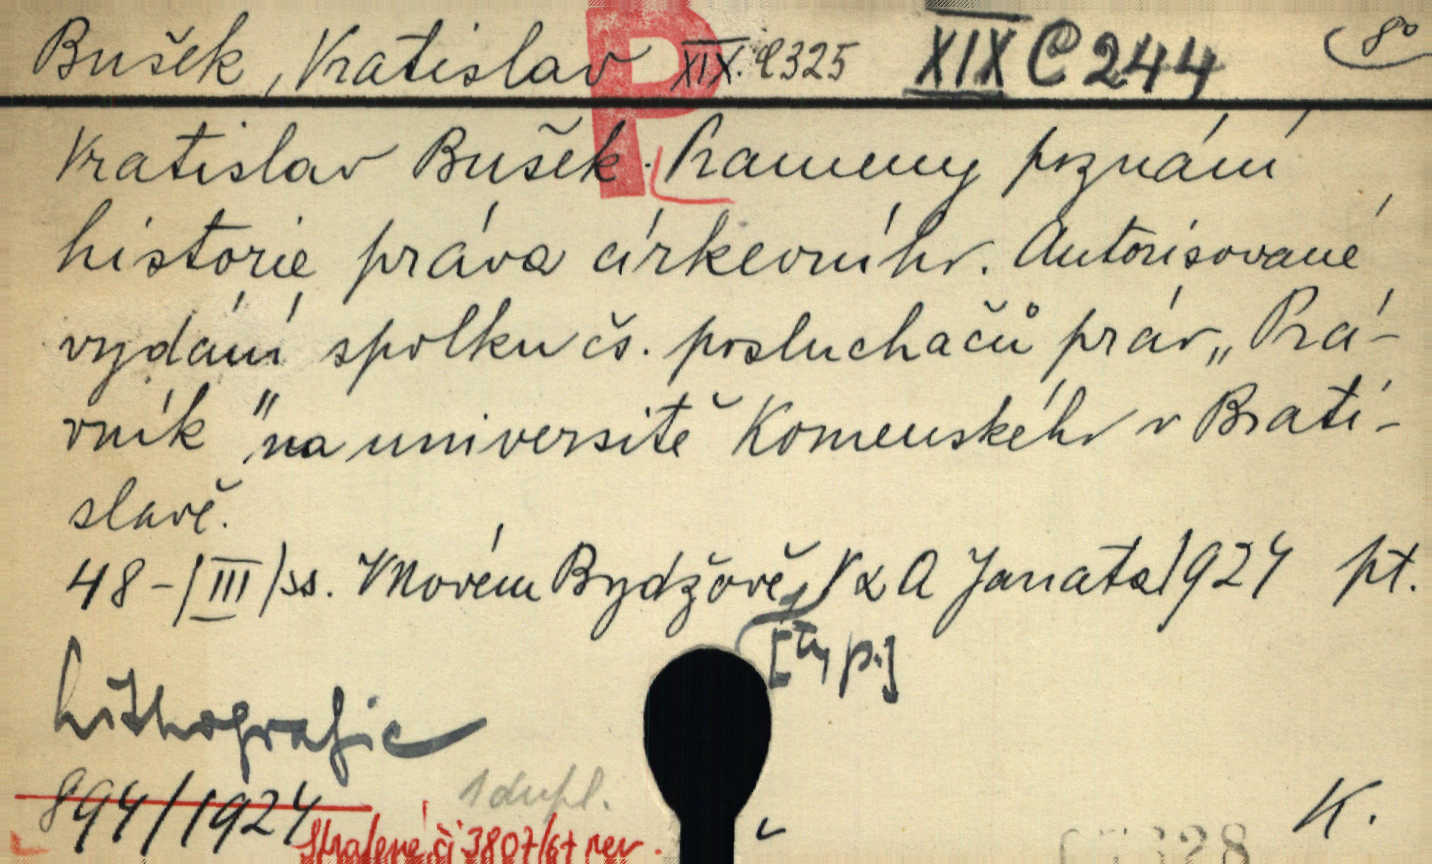 Bušek, Vratislav XIX. C 325 XIX C 244 8°
P
Vratislav Bušek. Prameny poznání
historie práva církevního. Autorisované
vydání spolku čs. posluchačů práv „Prá-
vník" na universitě Komenského v Brati-
slavě.
48-/III/ss. V Novém Bydžově, V & A Janata 1924 pt.
[Typ.]
Lithografie
894/1924 1 dupl. K.
Ztracené či 3807/67 rev.